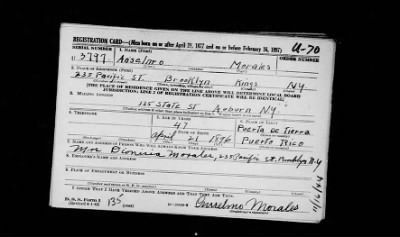 REGISTRATION CARD—(Men born on or after April 28, 1877 and on or before February 16, 1897)
U-70
SERIAL NUMBER
1. NAME (Print)
ORDER NUMBER
3799 Anselmo Morales
2. PLACE OF RESIDENCE (Print)
235 Pacific St. Brooklyn Kings N.Y.
[THE PLACE OF RESIDENCE GIVEN ON THE LINE ABOVE WILL DETERMINE LOCAL BOARD
JURISDICTION; LINE 2 OF REGISTRATION CERTIFICATE WILL BE IDENTICAL]
3. MAILING ADDRESS
135 State St Auburn NY
4. TELEPHONE
5. AGE IN YEARS
6. PLACE OF BIRTH
47
Puerta de Tierra
DATE OF BIRTH
April 21 1896 Puerto Rico
7. NAME AND ADDRESS OF PERSON WHO WILL ALWAYS KNOW YOUR ADDRESS
Mrs Morales, 235 Pacific St. Brooklyn N.Y
8. EMPLOYER'S NAME AND ADDRESS
9. PLACE OF EMPLOYMENT OR BUSINESS
I AFFIRM THAT I HAVE VERIFIED ABOVE ANSWERS AND THAT THEY ARE TRUE.
D. S. S. Form 1
Anselmo Morales